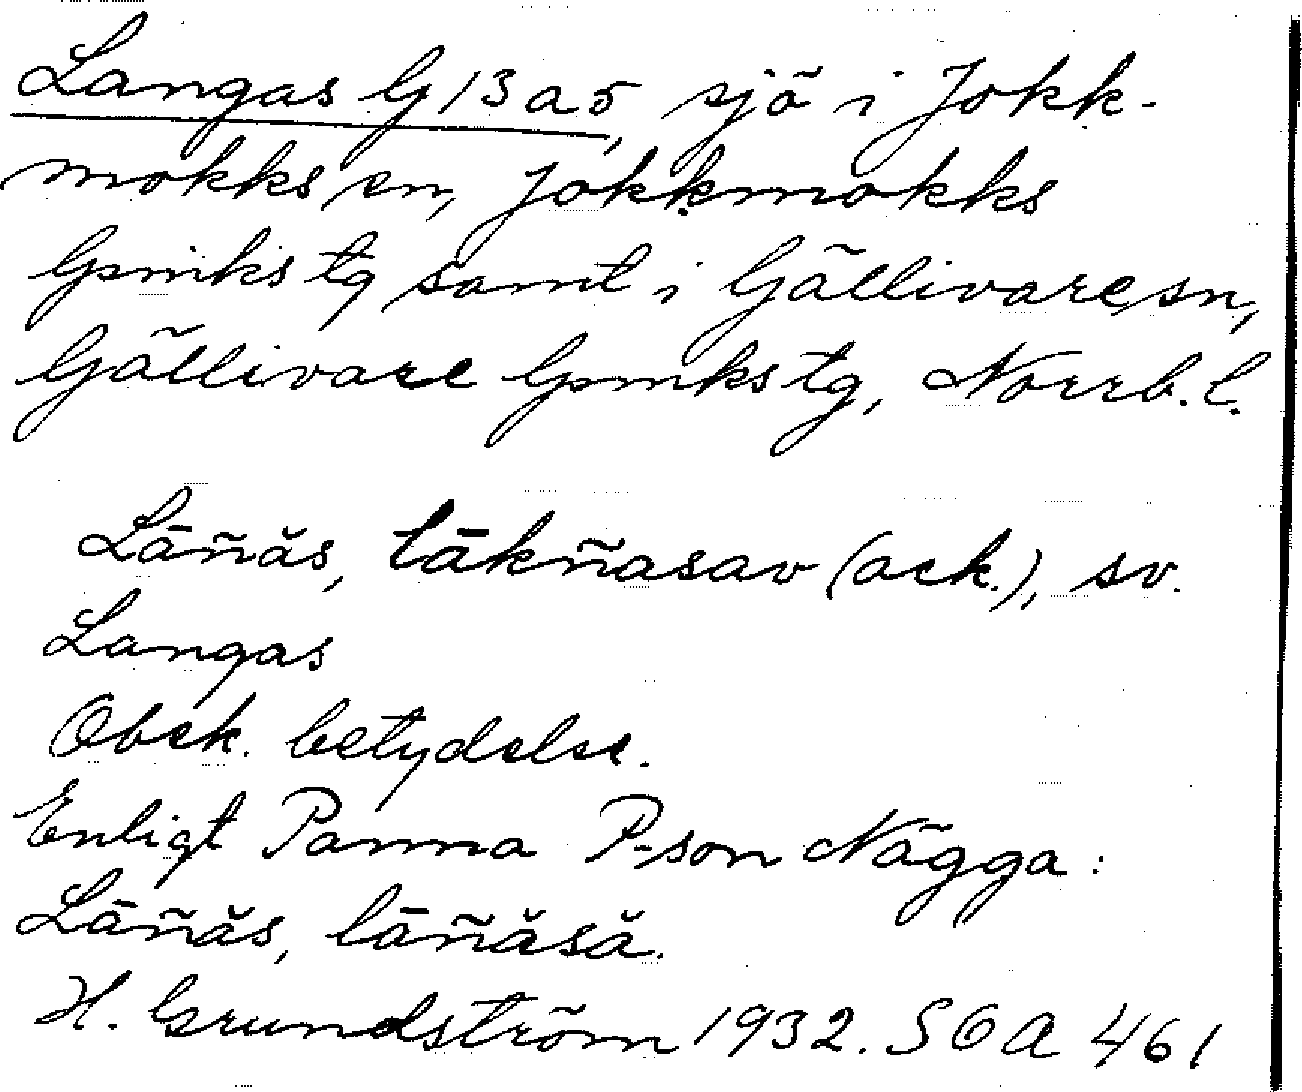 Langas G 13 a 5, sjö i Jokk-
mokks sn, Jokkmokks
lpmkstg samt i Gällivare sn,
Gällivare lpmkstg, Norrb. l.
Lāñăs, lākñasav (ack.), sv.
Langas
Obek. betydelse.
Enligt Panna P-son Nägga:
Lāñăs, lāñăsă.
H. Grundström 1932. SOA 461